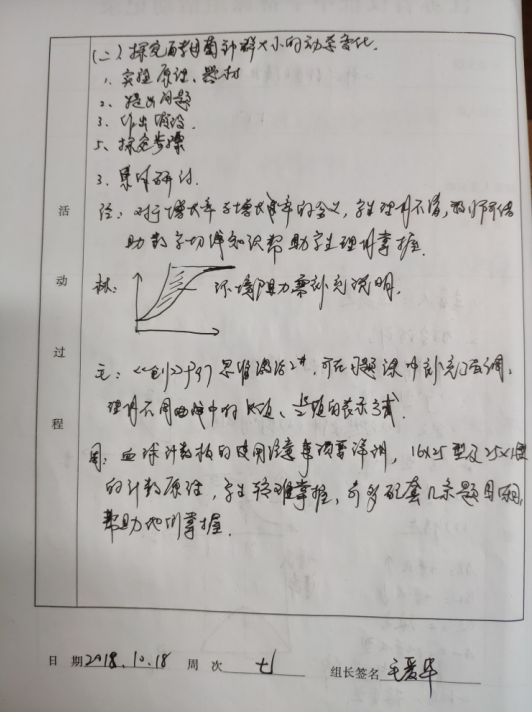 (二)探究酵母菌种群大小的动态变化.
1、实验原理、器材
2、提出问题
3、作出假设.
5、探究步骤
3、集体研讨.
活动过程
徐: 对于增大率与增长速率的含义, 学生理解不清, 教师可借
助数学切线知识帮助学生理解掌握.
林: 环境阻力需补充说明.
毛: 可在习题课中补充强调,
理解不同曲线中的K值、K/2值的表示方式.
周: 血球计数板的使用注意事项要详讲, 16×25型及25×16型
的计数原理, 学生较难掌握, 可多配套几条题目训练,
帮助他们掌握.
日 期 2018.10.18 周 次 七 组长签名 毛爱华